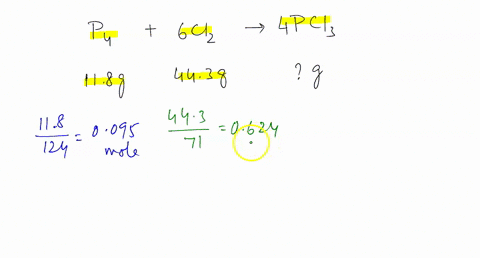 P₄ + 6Cl₂ → 4PCl₃
11.8g 44.3g ? g
11.8/124 = 0.095 mole 44.3/71 = 0.624